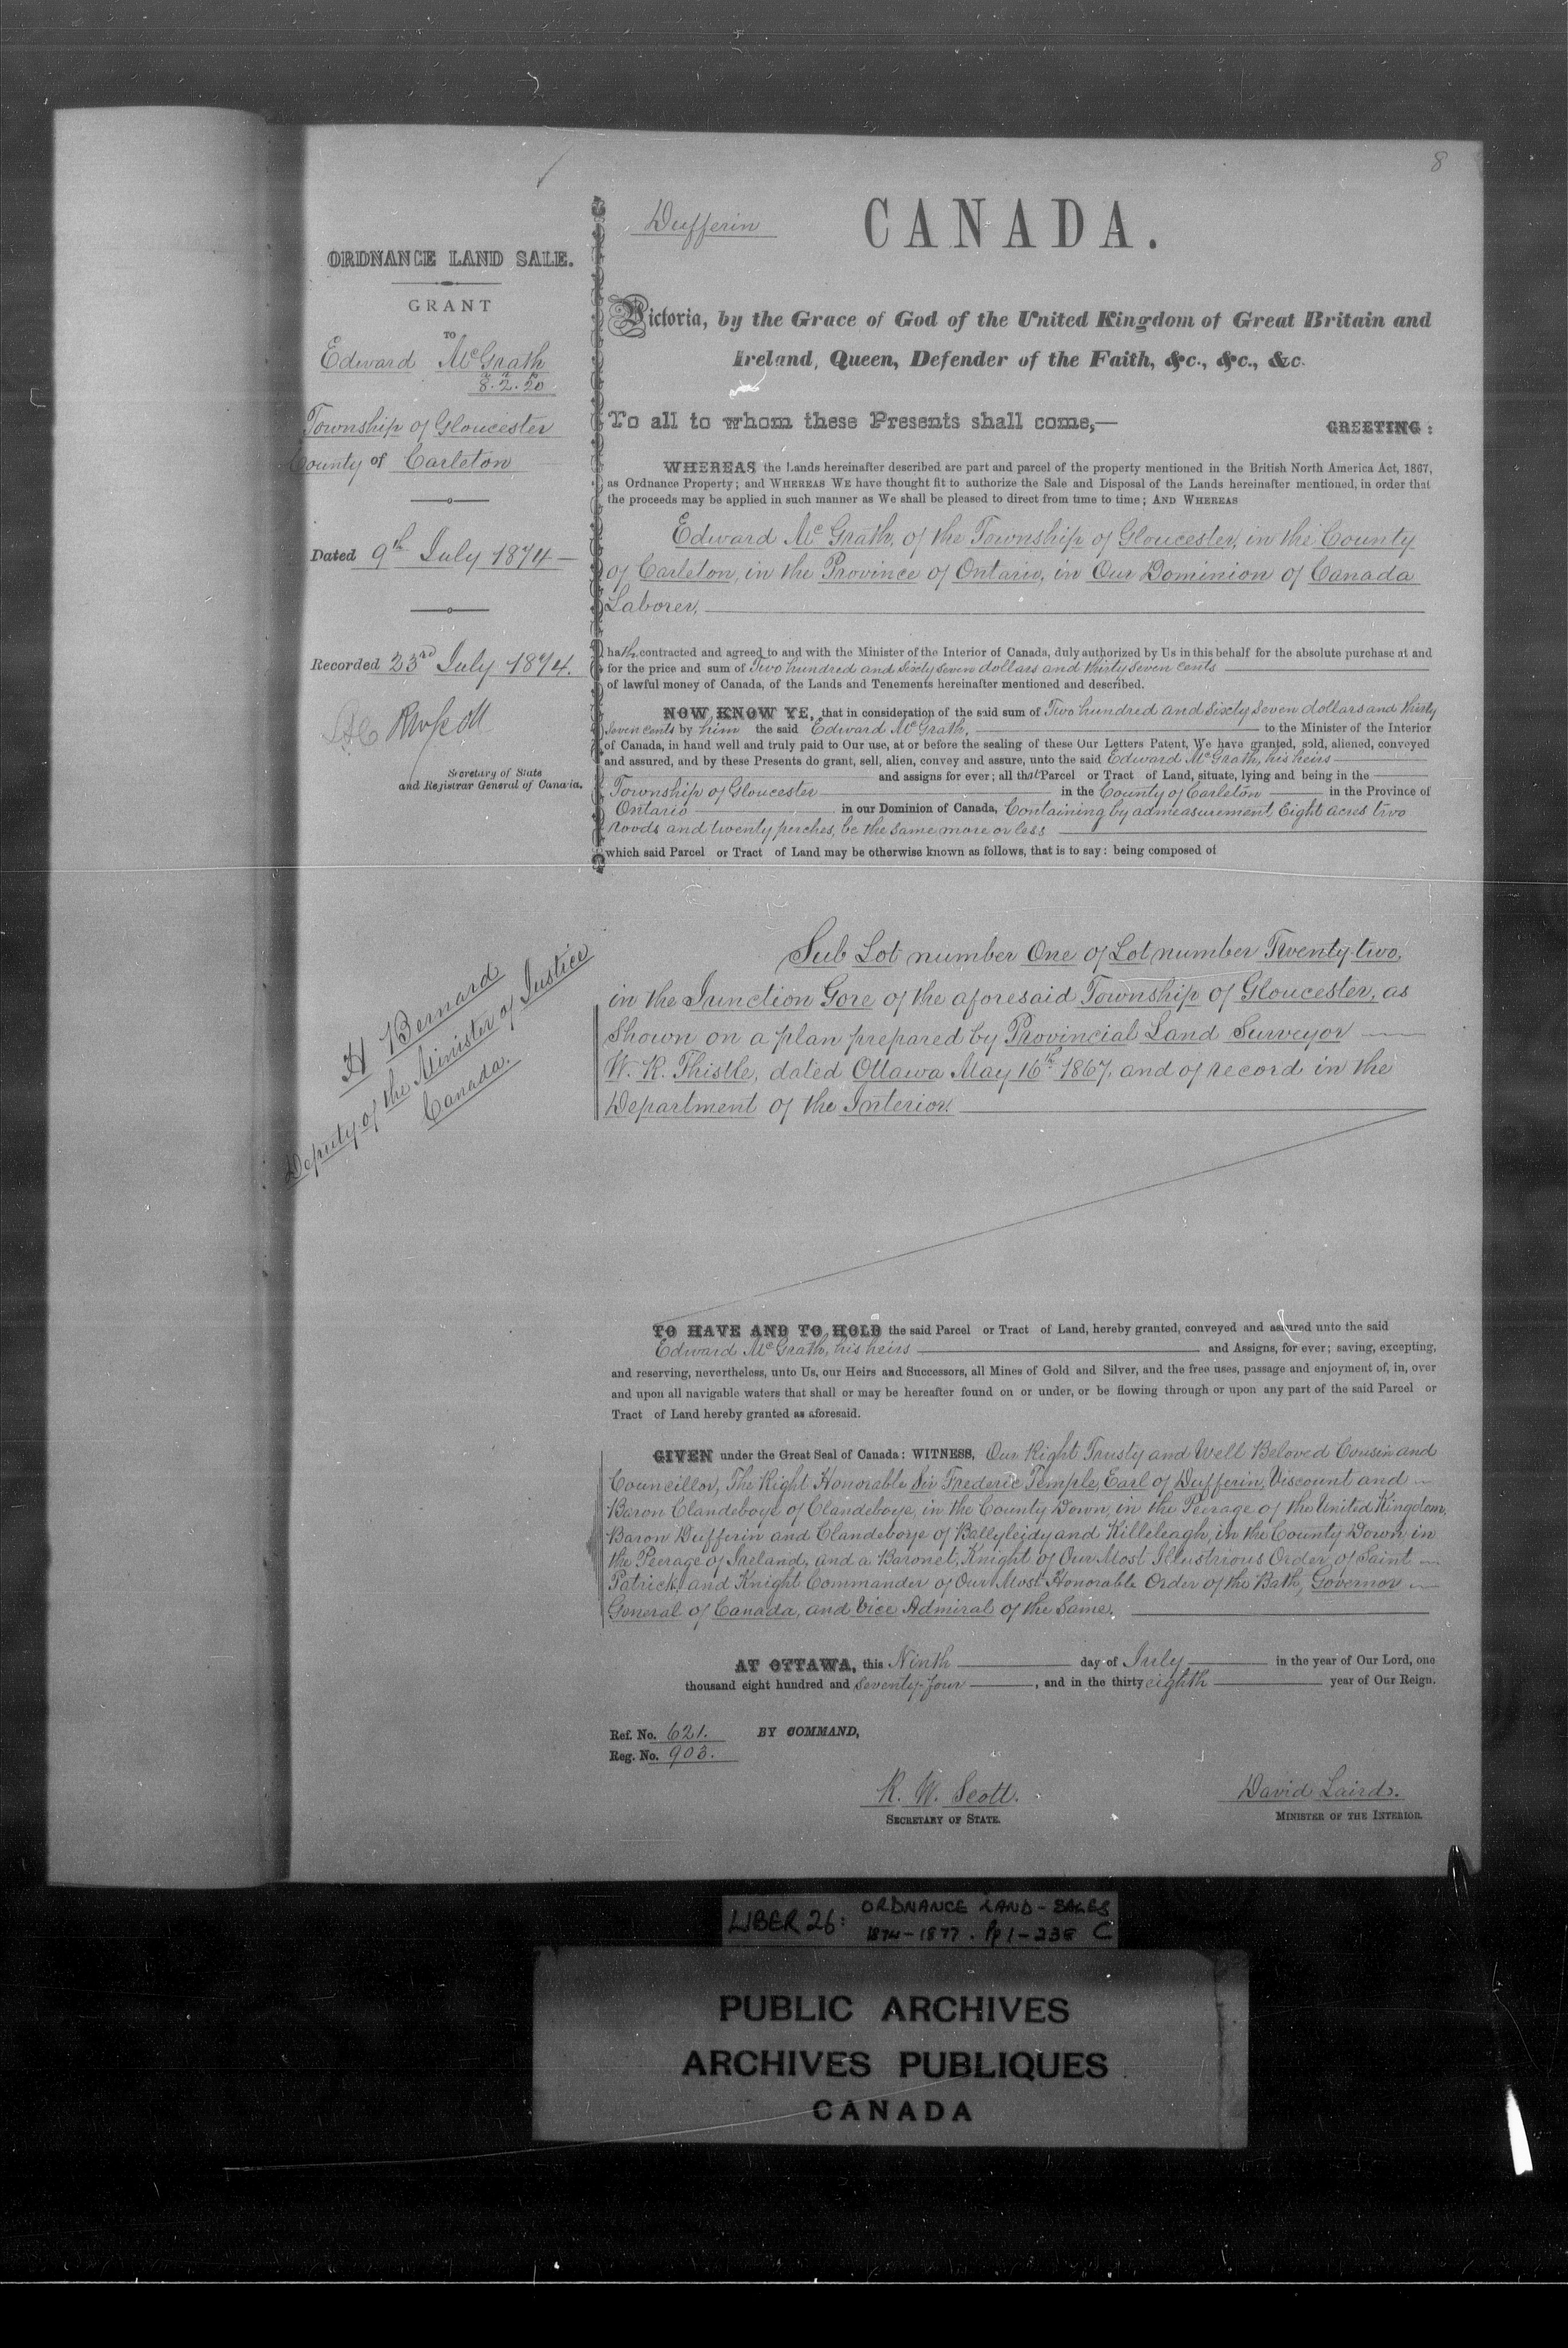 8
Dufferin
CANADA.
ORDNANCE LAND SALE.
GRANT
TO
Edward McGrath
8.2.20
Township of Gloucester
County of Carleton
Dated 9th July 1874
Recorded 23rd July 1874.
RWScott
Secretary of State
and Registrar General of Canada.
H Bernard
Deputy of the Minister of Justice
Canada.
Victoria, by the Grace of God of the United Kingdom of Great Britain and
Ireland, Queen, Defender of the Faith, &c., &c., &c.
To all to whom these Presents shall come,—
GREETING:
WHEREAS the Lands hereinafter described are part and parcel of the property mentioned in the British North America Act, 1867,
as Ordnance Property; and WHEREAS WE have thought fit to authorize the Sale and Disposal of the Lands hereinafter mentioned, in order that
the proceeds may be applied in such manner as We shall be pleased to direct from time to time; AND WHEREAS
Edward McGrath, of the Township of Gloucester, in the County
of Carleton, in the Province of Ontario, in Our Dominion of Canada
Laborer,
hath contracted and agreed to and with the Minister of the Interior of Canada, duly authorized by Us in this behalf for the absolute purchase at and
for the price and sum of Two hundred and Sixty Seven dollars and thirty seven cents
of lawful money of Canada, of the Lands and Tenements hereinafter mentioned and described.
NOW KNOW YE, that in consideration of the said sum of Two hundred and Sixty Seven dollars and thirty
Seven cents by him the said Edward McGrath, to the Minister of the Interior
of Canada, in hand well and truly paid to Our use, at or before the sealing of these Our Letters Patent, We have granted, sold, aliened, conveyed
and assured, and by these Presents do grant, sell, alien, convey and assure, unto the said Edward McGrath, his heirs
and assigns for ever; all that Parcel or Tract of Land, situate, lying and being in the
Township of Gloucester in the County of Carleton in the Province of
Ontario in our Dominion of Canada, Containing by admeasurement Eight acres two
roods and twenty perches, be the same more or less
which said Parcel or Tract of Land may be otherwise known as follows, that is to say: being composed of
Sub Lot number One of Lot number Twenty-two,
in the Junction Gore of the aforesaid Township of Gloucester, as
Shown on a plan prepared by Provincial Land Surveyor
W. R. Thistle, dated Ottawa May 16th 1867, and of record in the
Department of the Interior.
TO HAVE AND TO HOLD the said Parcel or Tract of Land, hereby granted, conveyed and assured unto the said
Edward McGrath, his heirs and Assigns, for ever; saving, excepting,
and reserving, nevertheless, unto Us, our Heirs and Successors, all Mines of Gold and Silver, and the free uses, passage and enjoyment of, in, over
and upon all navigable waters that shall or may be hereafter found on or under, or be flowing through or upon any part of the said Parcel or
Tract of Land hereby granted as aforesaid.
GIVEN under the Great Seal of Canada: WITNESS, Our Right Trusty and Well Beloved Cousin and
Councillor, The Right Honorable Sir Frederic Temple, Earl of Dufferin, Viscount and
Baron Clandeboye of Clandeboye, in the County Down, in the Peerage of the United Kingdom,
Baron Dufferin and Clandeboye of Ballyleidy and Killeleagh, in the County Down in
the Peerage of Ireland, and a Baronet, Knight of Our Most Illustrious Order of Saint
Patrick, and Knight Commander of Our Most Honorable Order of the Bath, Governor
General of Canada, and Vice Admiral of the Same.
AT OTTAWA, this Ninth day of July in the year of Our Lord, one
thousand eight hundred and seventy-four, and in the thirty eighth year of Our Reign.
Ref. No. 621. BY COMMAND,
Reg. No. 903.
R. W. Scott. David Laird.
SECRETARY OF STATE. MINISTER OF THE INTERIOR.
LIBER 26: ORDNANCE LAND-SALES
1874-1877. Pp 1-238 C
PUBLIC ARCHIVES
ARCHIVES PUBLIQUES
CANADA